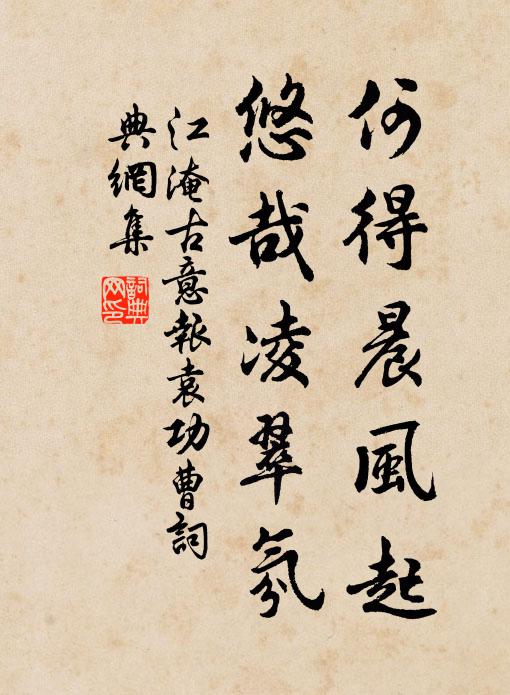 何得晨風起
悠哉凌翠氛
江淹古意報袁功曹詞
典網集
詞典
网印